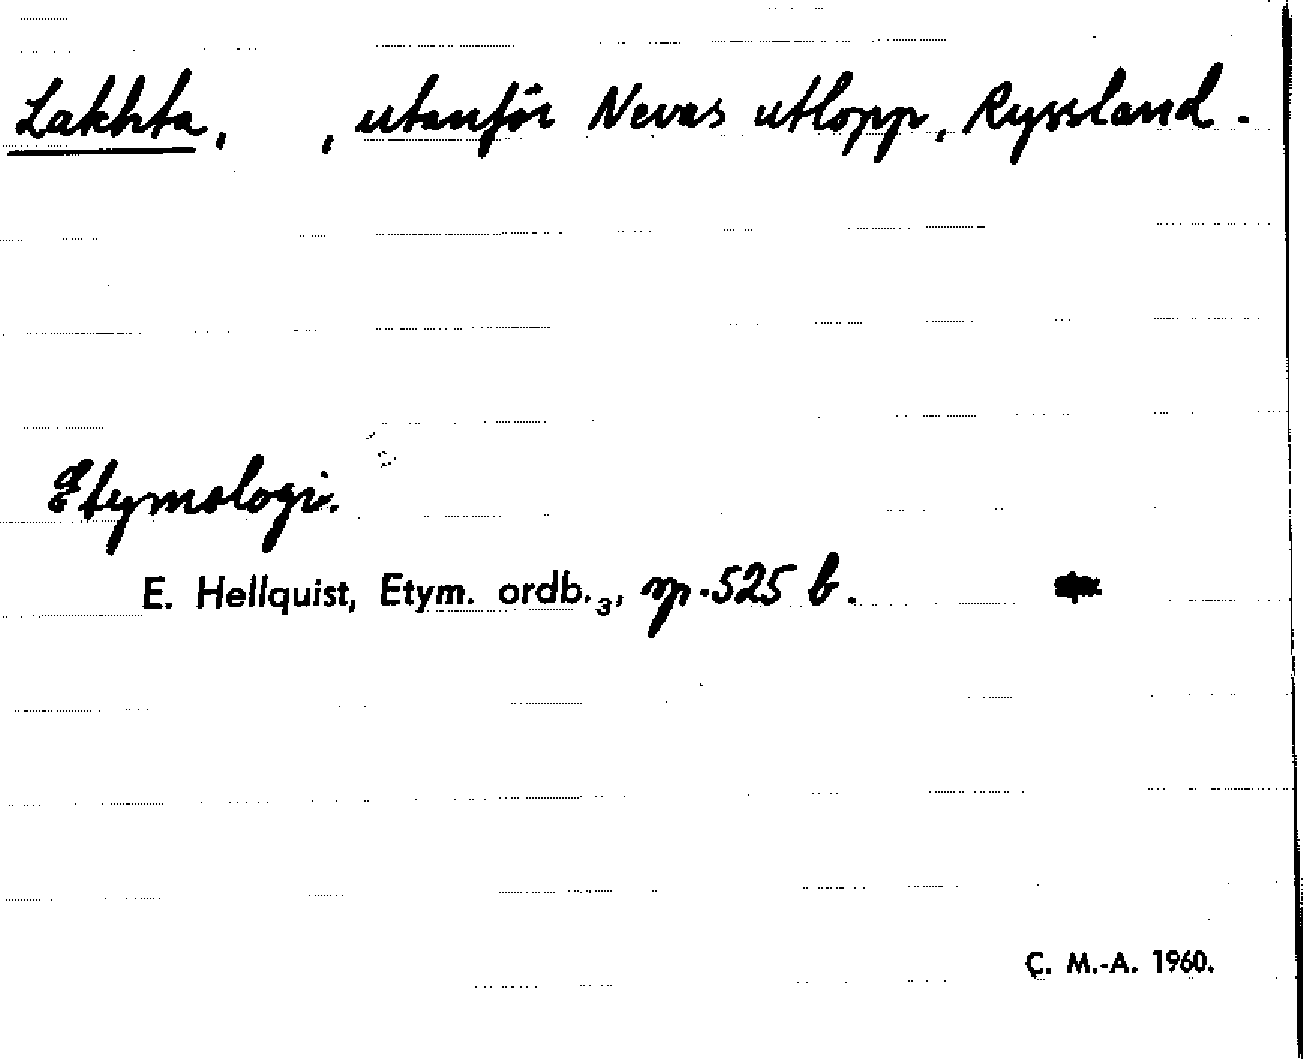 Lakhta, , utanför Nevas utlopp, Ryssland.
Etymologi.
E. Hellquist, Etym. ordb.3, sp. 525 b.
C. M.-A. 1960.